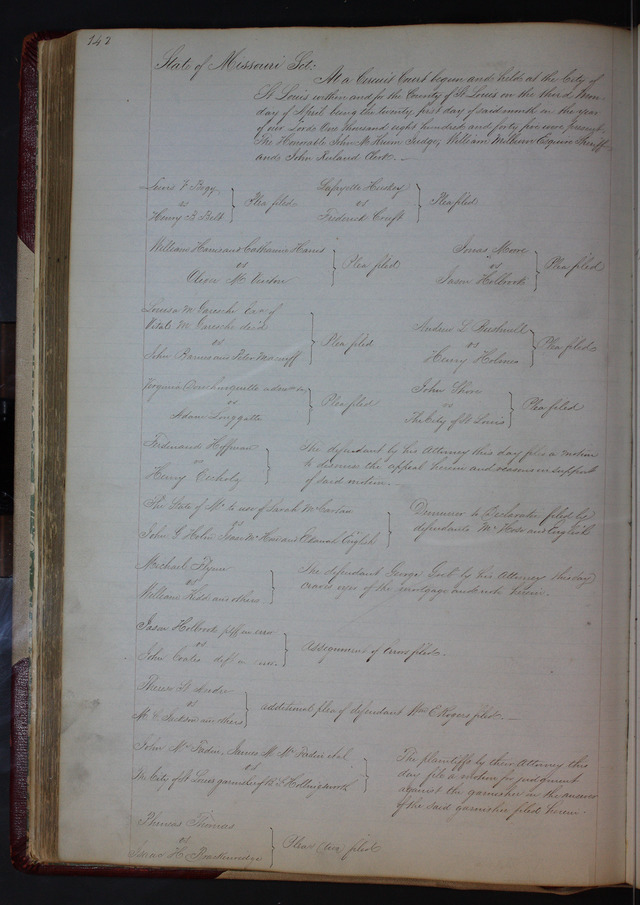 142
State of Missouri Sct:
At a Circuit Court begun and held at the City of
St Louis within and for the County of St Louis on the third Mon-
day of April being the twenty first day of said month in the year
of our Lord One thousand eight hundred and forty five were present,
The Honorable John M Krum Judge, William Milburn Esquire Sheriff
and John Ruland Clerk.
Henry B Belt
vs
Plea filed
Lafayette
vs
Frederick
Plea filed
William Harris and Catharine Harris
vs
Oliver M
Plea filed
Jonas Moore
vs
Jason Holbrook
Plea filed
Louisa M Exx of
Vitale M decd
vs
John Barnes and Peter
Plea filed
Andrew L
vs
Henry Holmes
Plea filed
Virginia
vs
Adam
Plea filed
John Shore
vs
The City of St Louis
Plea filed
Ferdinand Hoffman
vs
Henry
The defendant by his Attorney this day files a motion
to dismiss the appeal herein and reasons in support
of said motion.
The State of Mo to use of Sarah
vs
John G Isaac Mc and English
Demurrer to Declaration filed by
defendants Mc and English
Michael Flynn
vs
William Kidd and others
The defendant George by his Attorney this day
craves oyer of the mortgage and note herein.
Jason Holbrook plff in error
vs
John Coates deft in error
Assignment of Errors filed.
vs
Jackson and others
additional plea of defendant Wm C Rogers filed.
John Mc Faden, James M Mc Faden et al
vs
The City of St Louis garnishee of B. Hollingsworth
The plaintiffs by their Attorney this
day file a motion for judgment
against the garnishee on the answer
of the said garnishee filed herein.
Phineas Thomas
vs
Isaac H Breckenridge
Pleas filed